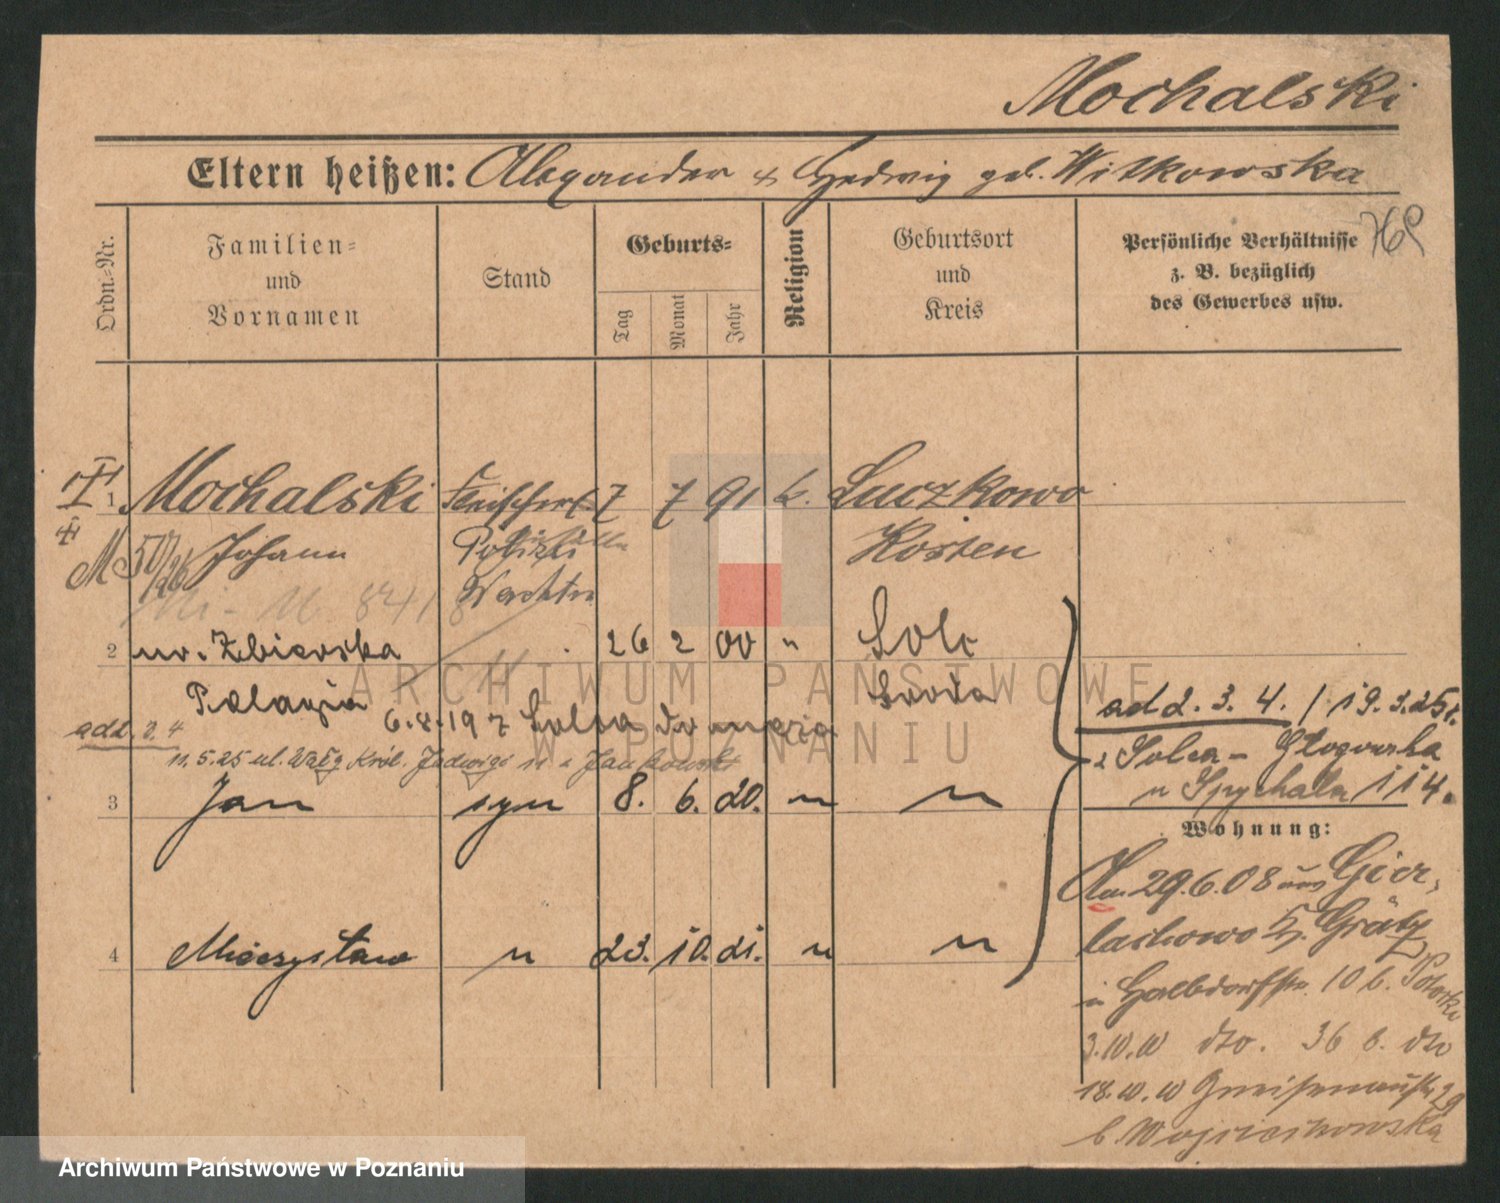 Mochalski
Eltern heißen: Alexander & Hedwig geb. Witkowska
Ordn.=Nr.
Familien=
und
Vornamen
Stand
Geburts=
Tag
Monat
Jahr
Religion
Geburtsort
und
Kreis
Persönliche Verhältnisse
z. B. bezüglich
des Gewerbes usw.
1 Mochalski 7 7 91 k. Luczkowo
Johann Polizei Kosten
Wachtm
2 ur. Zbierska 26 2 00 "
Pelagia Środa
ad 2. 3. 4
6.8.19 z Solca do męża
11.5.25 ul. Wały Król. Jadwigi
3 Jan syn 8. 6. 20. " "
4 Mieczysław " 23. 10. 21. " "
ad 2. 3. 4. / 19. 3. 25 r.
z Solca - Głogowska
u Spychała 114.
Wohnung:
Am 29.6.08 aus Gier-
lachowo Kr. Grätz
in Halbdorfstr. 10 b.
3.10.10 dto. 36 b. dto
18.10.10 Gneisenaustr 29
b. Wojciechowska
ARCHIWUM PAŃSTWOWE
W POZNANIU
Archiwum Państwowe w Poznaniu